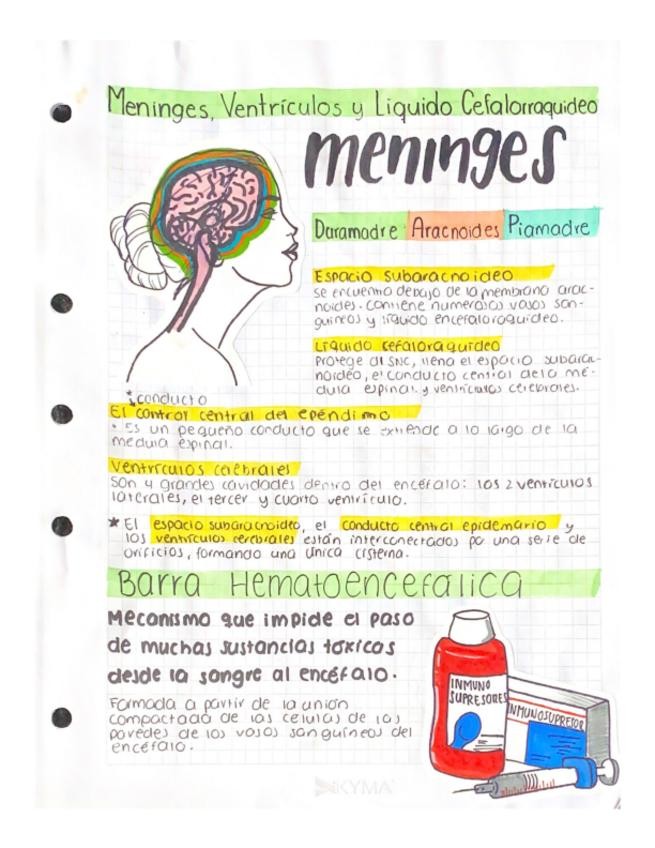 Meninges, Ventrículos y Liquido Cefalorraquideo
meninges
Duramadre Aracnoides Piamadre
Espacio subaracnoideo
se encuentra debajo de la membrana arac-
noides. Contiene numerosos vasos san-
guineos y líquido encefaloraquideo.
Líquido cefaloraquideo
Protege al SNC, llena el espacio subarac-
noideo, el conducto central de la mé-
dula espinal y ventriculos cerebrales.
*conducto
El control central del epéndimo
• Es un pequeño conducto que se extiende a lo largo de la
medula espinal.
Ventrículos cerebrales
Son 4 grandes cavidades dentro del encéfalo: los 2 ventriculos
laterales, el tercer y cuarto ventrículo.
* El espacio subaracnoideo, el conducto central epidemario y
los ventriculos cerebrales están interconectados por una serie de
orificios, formando una única cisterna.
Barra Hematoencefalica
Meconismo que impide el paso
de muchas sustancias toxicas
desde la sangre al encéfalo.
Formada a partir de la unión
compactada de las celulas de las
paredes de los vasos sanguineos del
encéfalo.
INMUNO
SUPRESORES
INMUNOSUPRESOR
KYMA